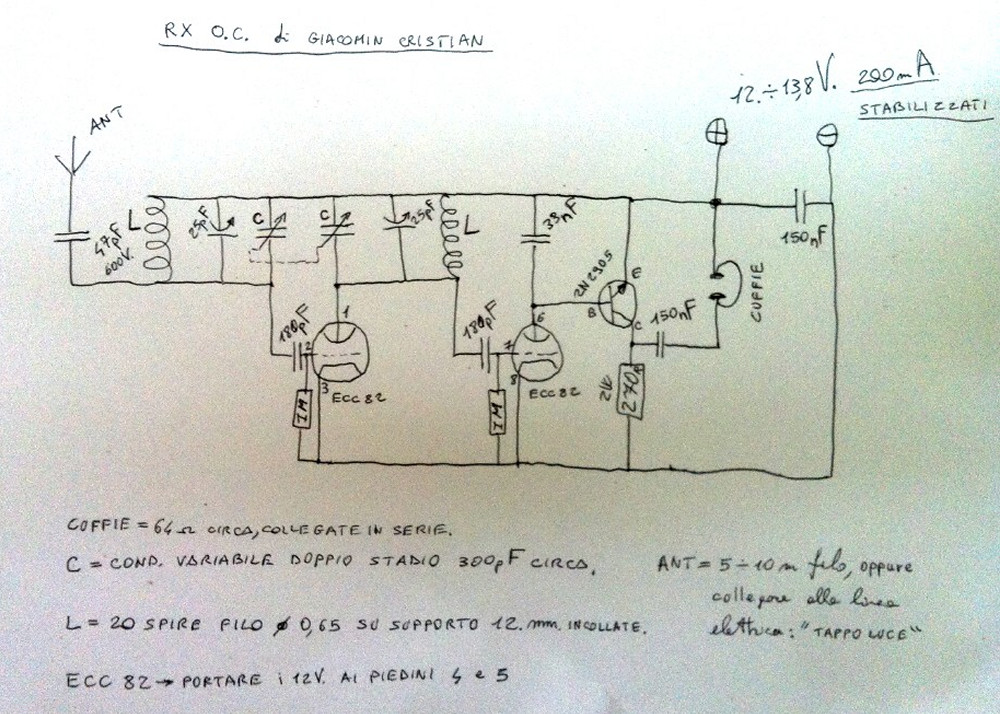 RX O.C. di GIACOMIN CRISTIAN
12÷13,8V. 200mA
STABILIZZATI
ANT
47pF
600V.
L
25pF
C
C
25pF
L
39nF
150nF
2N2905
E
B
C
150nF
CUFFIE
180pF
1
2
3
ECC82
1M
180pF
6
7
8
ECC82
1M
2W
270Ω
COFFIE = 64Ω CIRCA, COLLEGATE IN SERIE.
C = COND. VARIABILE DOPPIO STADIO 300pF CIRCA.
ANT = 5÷10 m filo, oppure
collegare alla linea
elettrica: "TAPPO LUCE"
L = 20 SPIRE FILO ø 0,65 SU SUPPORTO 12. mm. INCOLLATE.
ECC 82 → PORTARE i 12V. AI PIEDINI 4 e 5